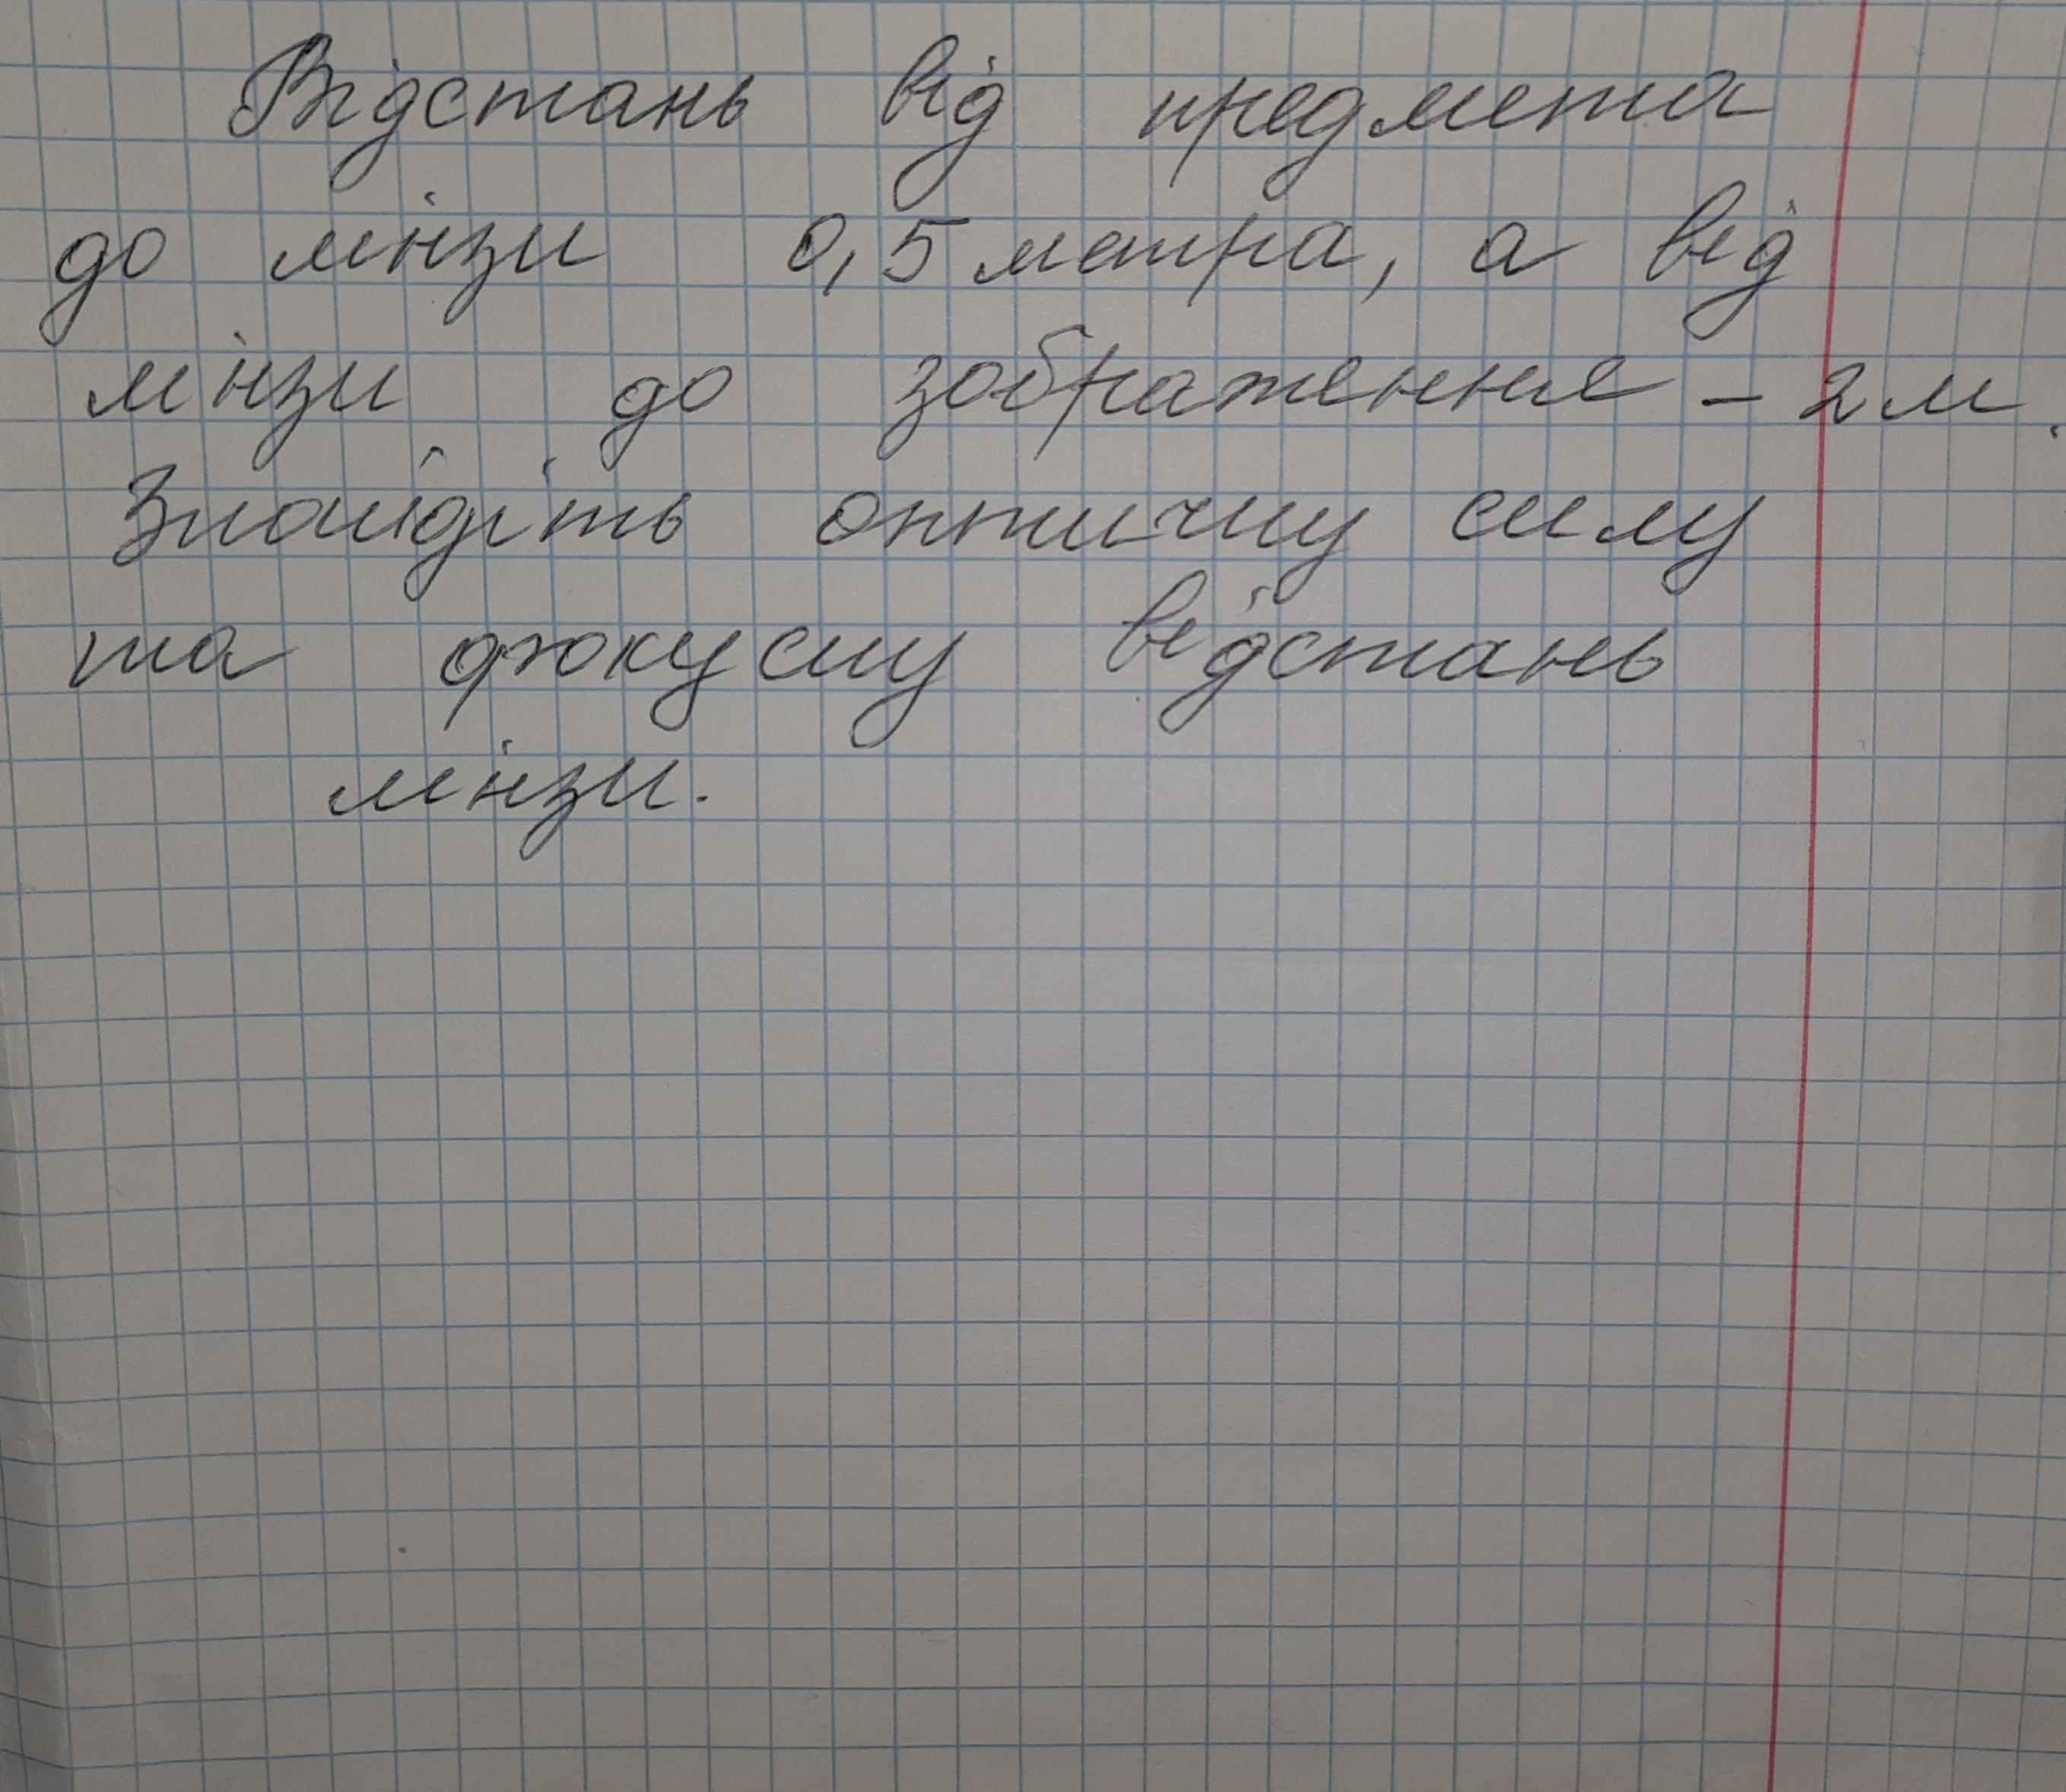 Відстань від предмета
до лінзи 0,5 метра, а від
лінзи до зображення - 2 м.
Знайдіть оптичну силу
та фокусну відстань
лінзи.